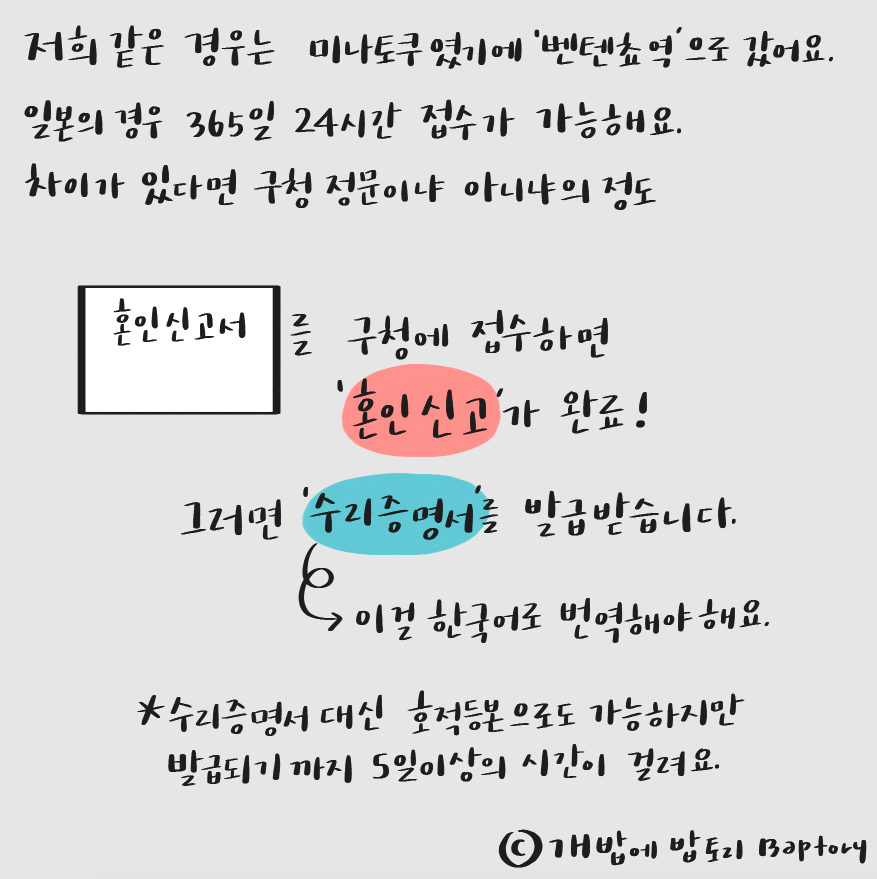 저희 같은 경우는 미나토쿠였기에 '벤텐쵸역'으로 갔어요.
일본의 경우 365일 24시간 접수가 가능해요.
차이가 있다면 구청 정문이냐 아니냐의 정도
혼인신고서 를 구청에 접수하면
'혼인신고'가 완료!
그러면 '수리증명서'를 발급받습니다.
이걸 한국어로 번역해야해요.
*수리증명서 대신 호적등본으로도 가능하지만
발급되기까지 5일이상의 시간이 걸려요.
©개밥에 밥토리 Baptory